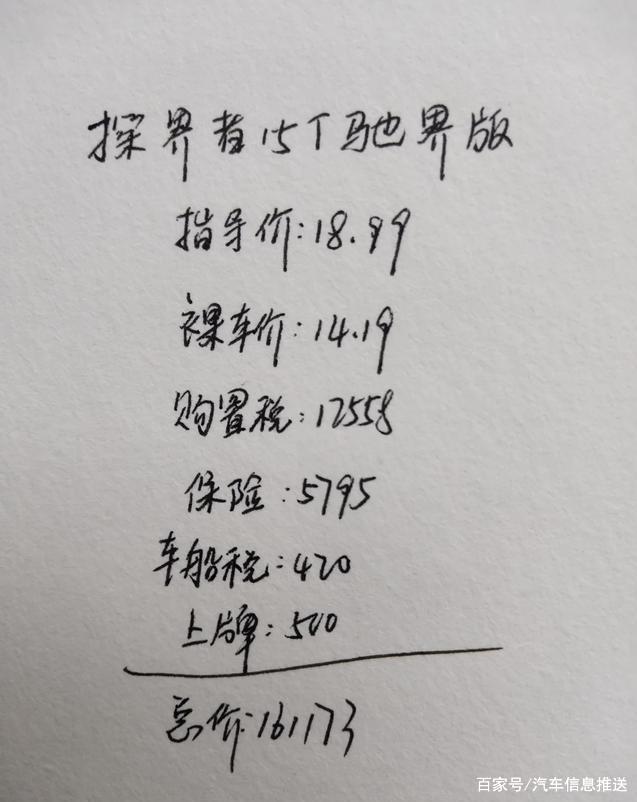 探界者15T驰界版
指导价:18.99
裸车价:14.19
购置税:12558
保险:5795
车船税:420
上牌:500
总价:161173
百家号/汽车信息推送